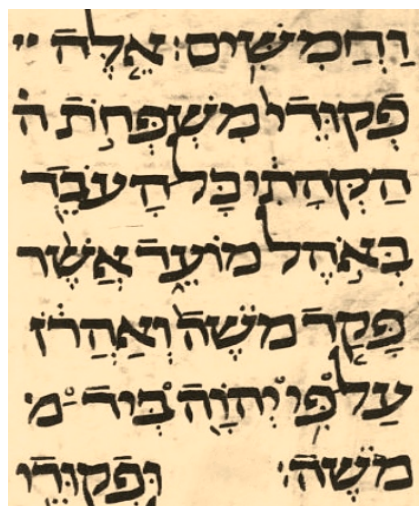 וַחֲמִשִּׁים׃ אֵ֣לֶּה יי
פְקוּדֵי֙ מִשְׁפְּחֹ֣ת ה
הַקְּהָתִ֔י כָּל הָעֹבֵ֖ד
בְּאֹ֣הֶל מוֹעֵ֑ד אֲשֶׁ֨ר
פָּקַ֤ד מֹשֶׁה֙ וְאַהֲרֹ֔ן
עַל פִּ֥י יְהוָ֖ה בְּיַד־ מ
מֹשֶֽׁה׃ וּפְקוּדֵ֖י